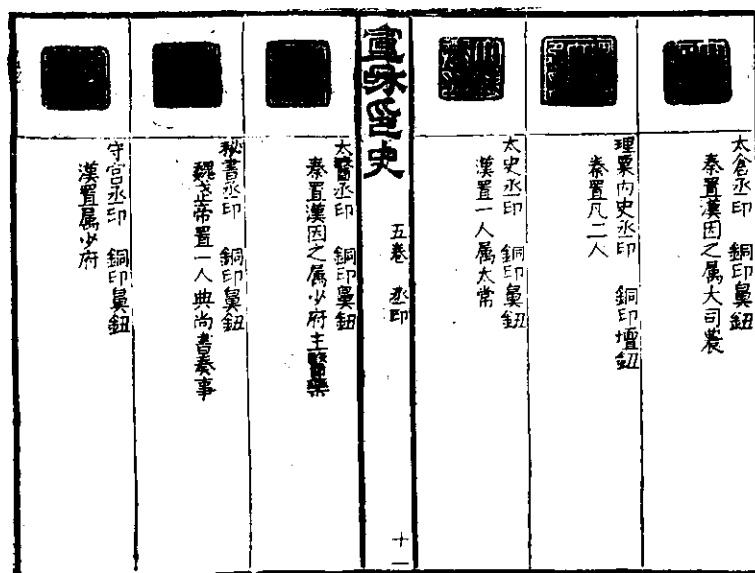 太倉丞印 銅印鼻鈕
秦置漢因之属大司農
理粟内史丞印 銅印壇鈕
秦置凡二人
太史丞印 銅印鼻鈕
漢置一人属太常
宣和印史 五卷 丞印 十一
太醫丞印 銅印鼻鈕
秦置漢因之属少府主醫藥
秘書丞印 銅印鼻鈕
魏武帝置一人典尚書奏事
守宫丞印 銅印鼻鈕
漢置属少府